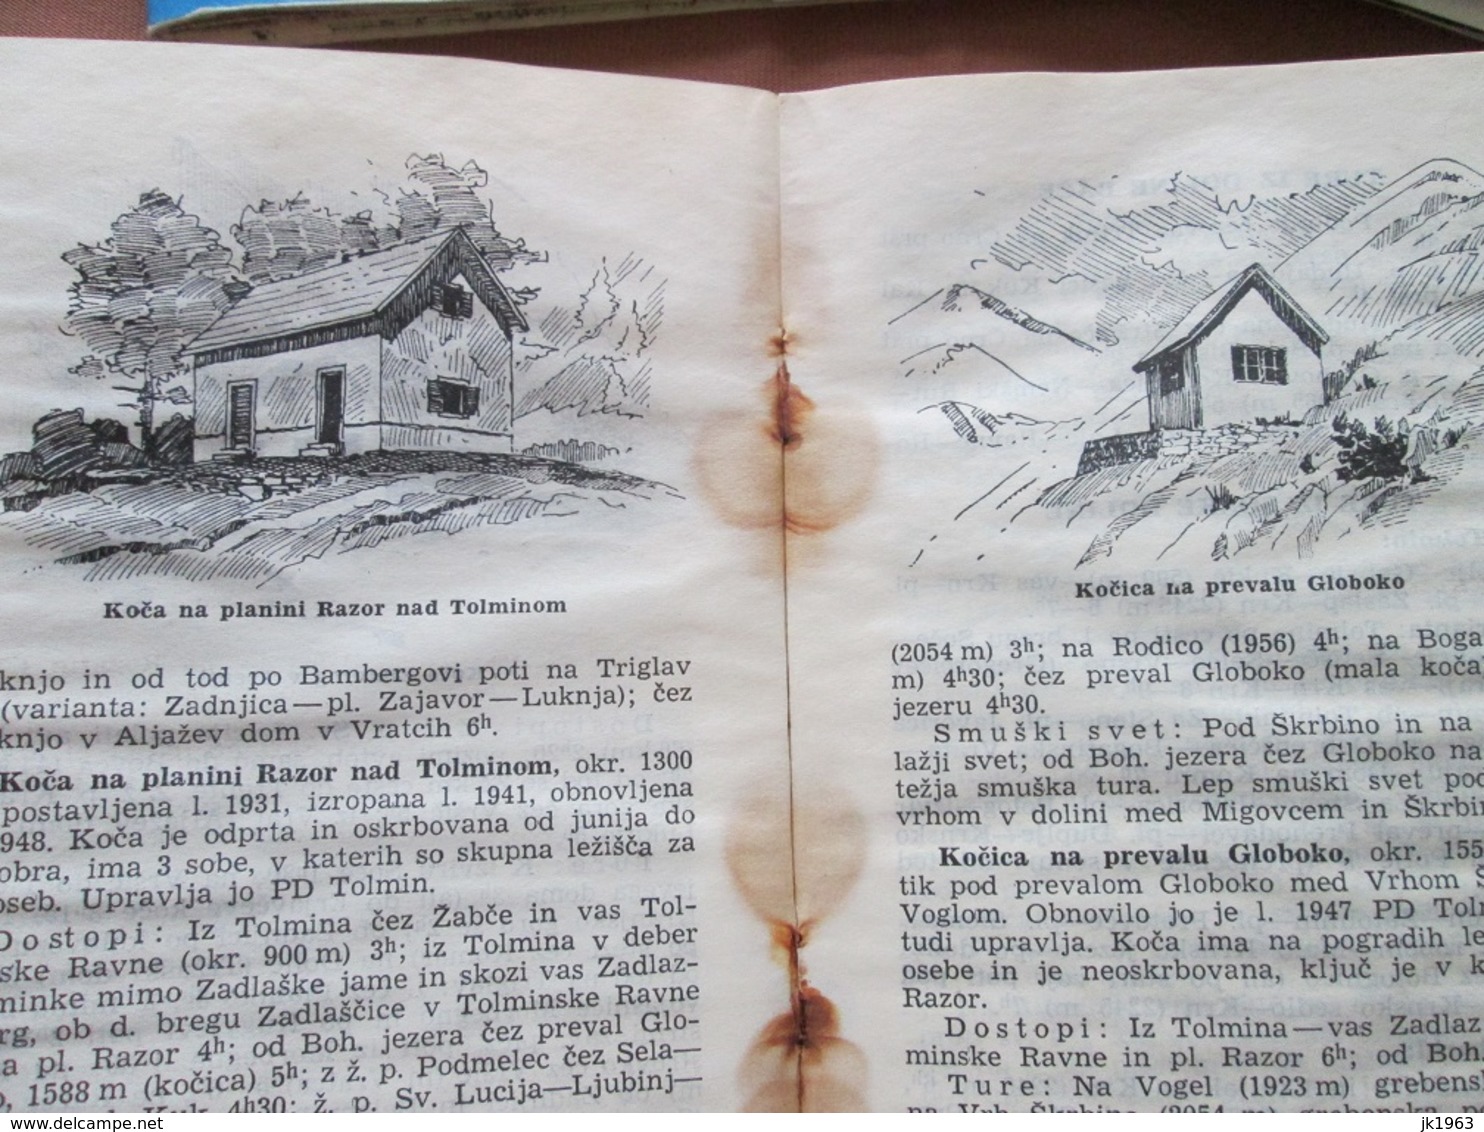 Koča na planini Razor nad Tolminom
knjo in od tod po Bambergovi poti na Triglav
(varianta: Zadnjica—pl. Zajavor—Luknja); čez
knjo v Aljažev dom v Vratcih 6h.
Koča na planini Razor nad Tolminom, okr. 1300
postavljena l. 1931, izropana l. 1941, obnovljena
948. Koča je odprta in oskrbovana od junija do
obra, ima 3 sobe, v katerih so skupna ležišča za
oseb. Upravlja jo PD Tolmin.
Dostopi: Iz Tolmina čez Žabče in vas Tol-
ske Ravne (okr. 900 m) 3h; iz Tolmina v deber
minke mimo Zadlaške jame in skozi vas Zadlaz-
rg, ob d. bregu Zadlaščice v Tolminske Ravne
a pl. Razor 4h; od Boh. jezera čez preval Glo-
o, 1588 m (kočica) 5h; z ž. p. Podmelec čez Sela—
Kuk 4h30; ž. p. Sv. Lucija—Ljubinj—
Kočica na prevalu Globoko
(2054 m) 3h; na Rodico (1956) 4h; na Boga
m) 4h30; čez preval Globoko (mala koča)
jezeru 4h30.
Smuški svet: Pod Škrbino in na
lažji svet; od Boh. jezera čez Globoko na
težja smuška tura. Lep smuški svet pod
vrhom v dolini med Migovcem in Škrbin
Kočica na prevalu Globoko, okr. 155
tik pod prevalom Globoko med Vrhom Š
Voglom. Obnovilo jo je l. 1947 PD Toln
tudi upravlja. Koča ima na pogradih le
osebe in je neoskrbovana, ključ je v k
Razor.
Dostopi: Iz Tolmina—vas Zadlaz
minske Ravne in pl. Razor 6h; od Boh.
Ture: Na Vogel (1923 m) grebensk
na Vrh Škrbine (2054 m) grebenska p
www.delcampe.net
jk1963